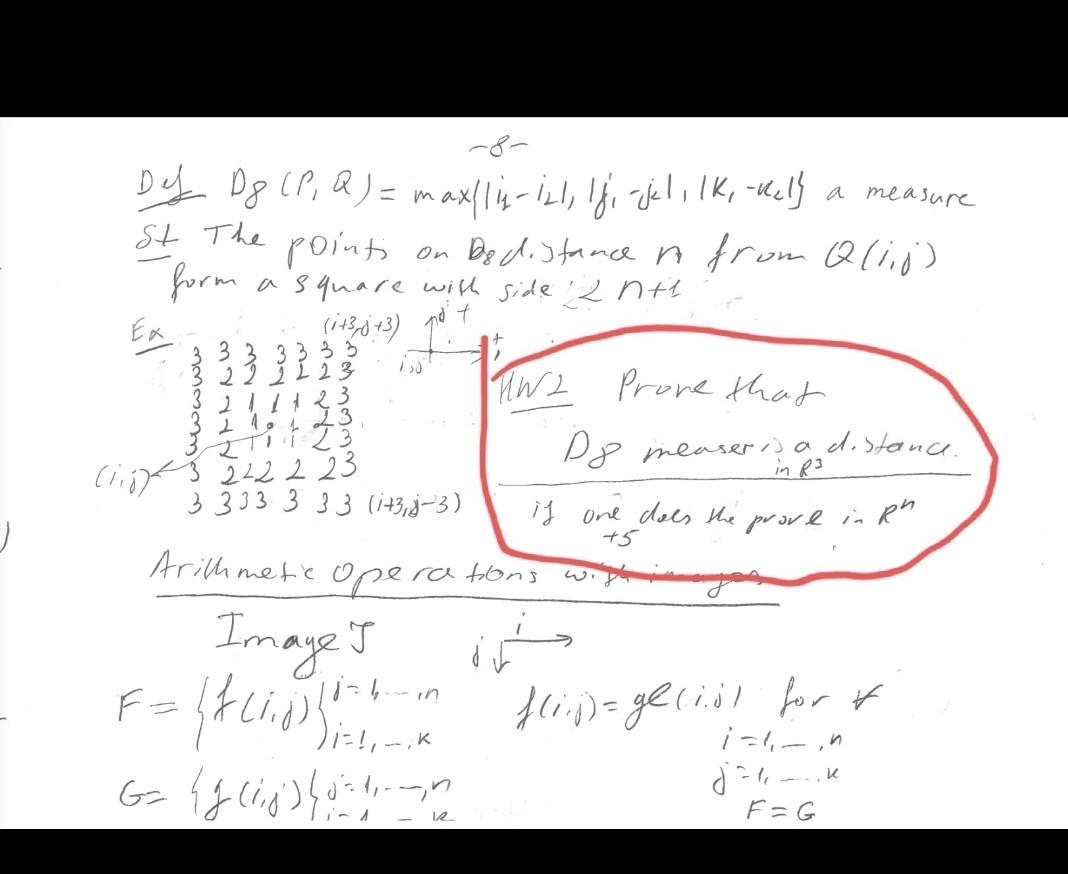 -8-
Def D8 (P, Q) = max{|i1-i2|, |j1-j2|, |K1-K2|} a measure
St The points on D8 distance n from Q(i,j)
form a square with side 2n+1
Ex (i+3,j+3) j +
3 3 3 3 3 3 3 i,j +
3 2 2 2 2 2 3
3 2 1 1 1 2 3
3 2 1 1 2 3
3 2 1 1 1 2 3
(i,j) 3 2 2 2 2 2 3
3 3 3 3 3 3 3 (i+3,j-3)
HW2 Prove that
D8 measer is a distance.
in R³
if one does the prove in Rⁿ
+5
Arithmetic operations with images
Image J i
j
F = {f(i,j)} j=1,...,n i=1,...,k f(i,j) = gl(i,j) for ∀
i=1,...,n
j=1,...,k
G = {g(i,j)} j=1,...,n i=1 ... k
F = G